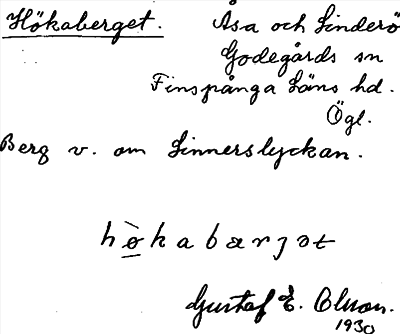 Hökaberget. Åsa och Linderö
Godegårds sn
Finspånga Läns hd.
Ögl.
Berg v. om Linnerslyckan.
hökabærjət
Gustaf E. Olson.
1930